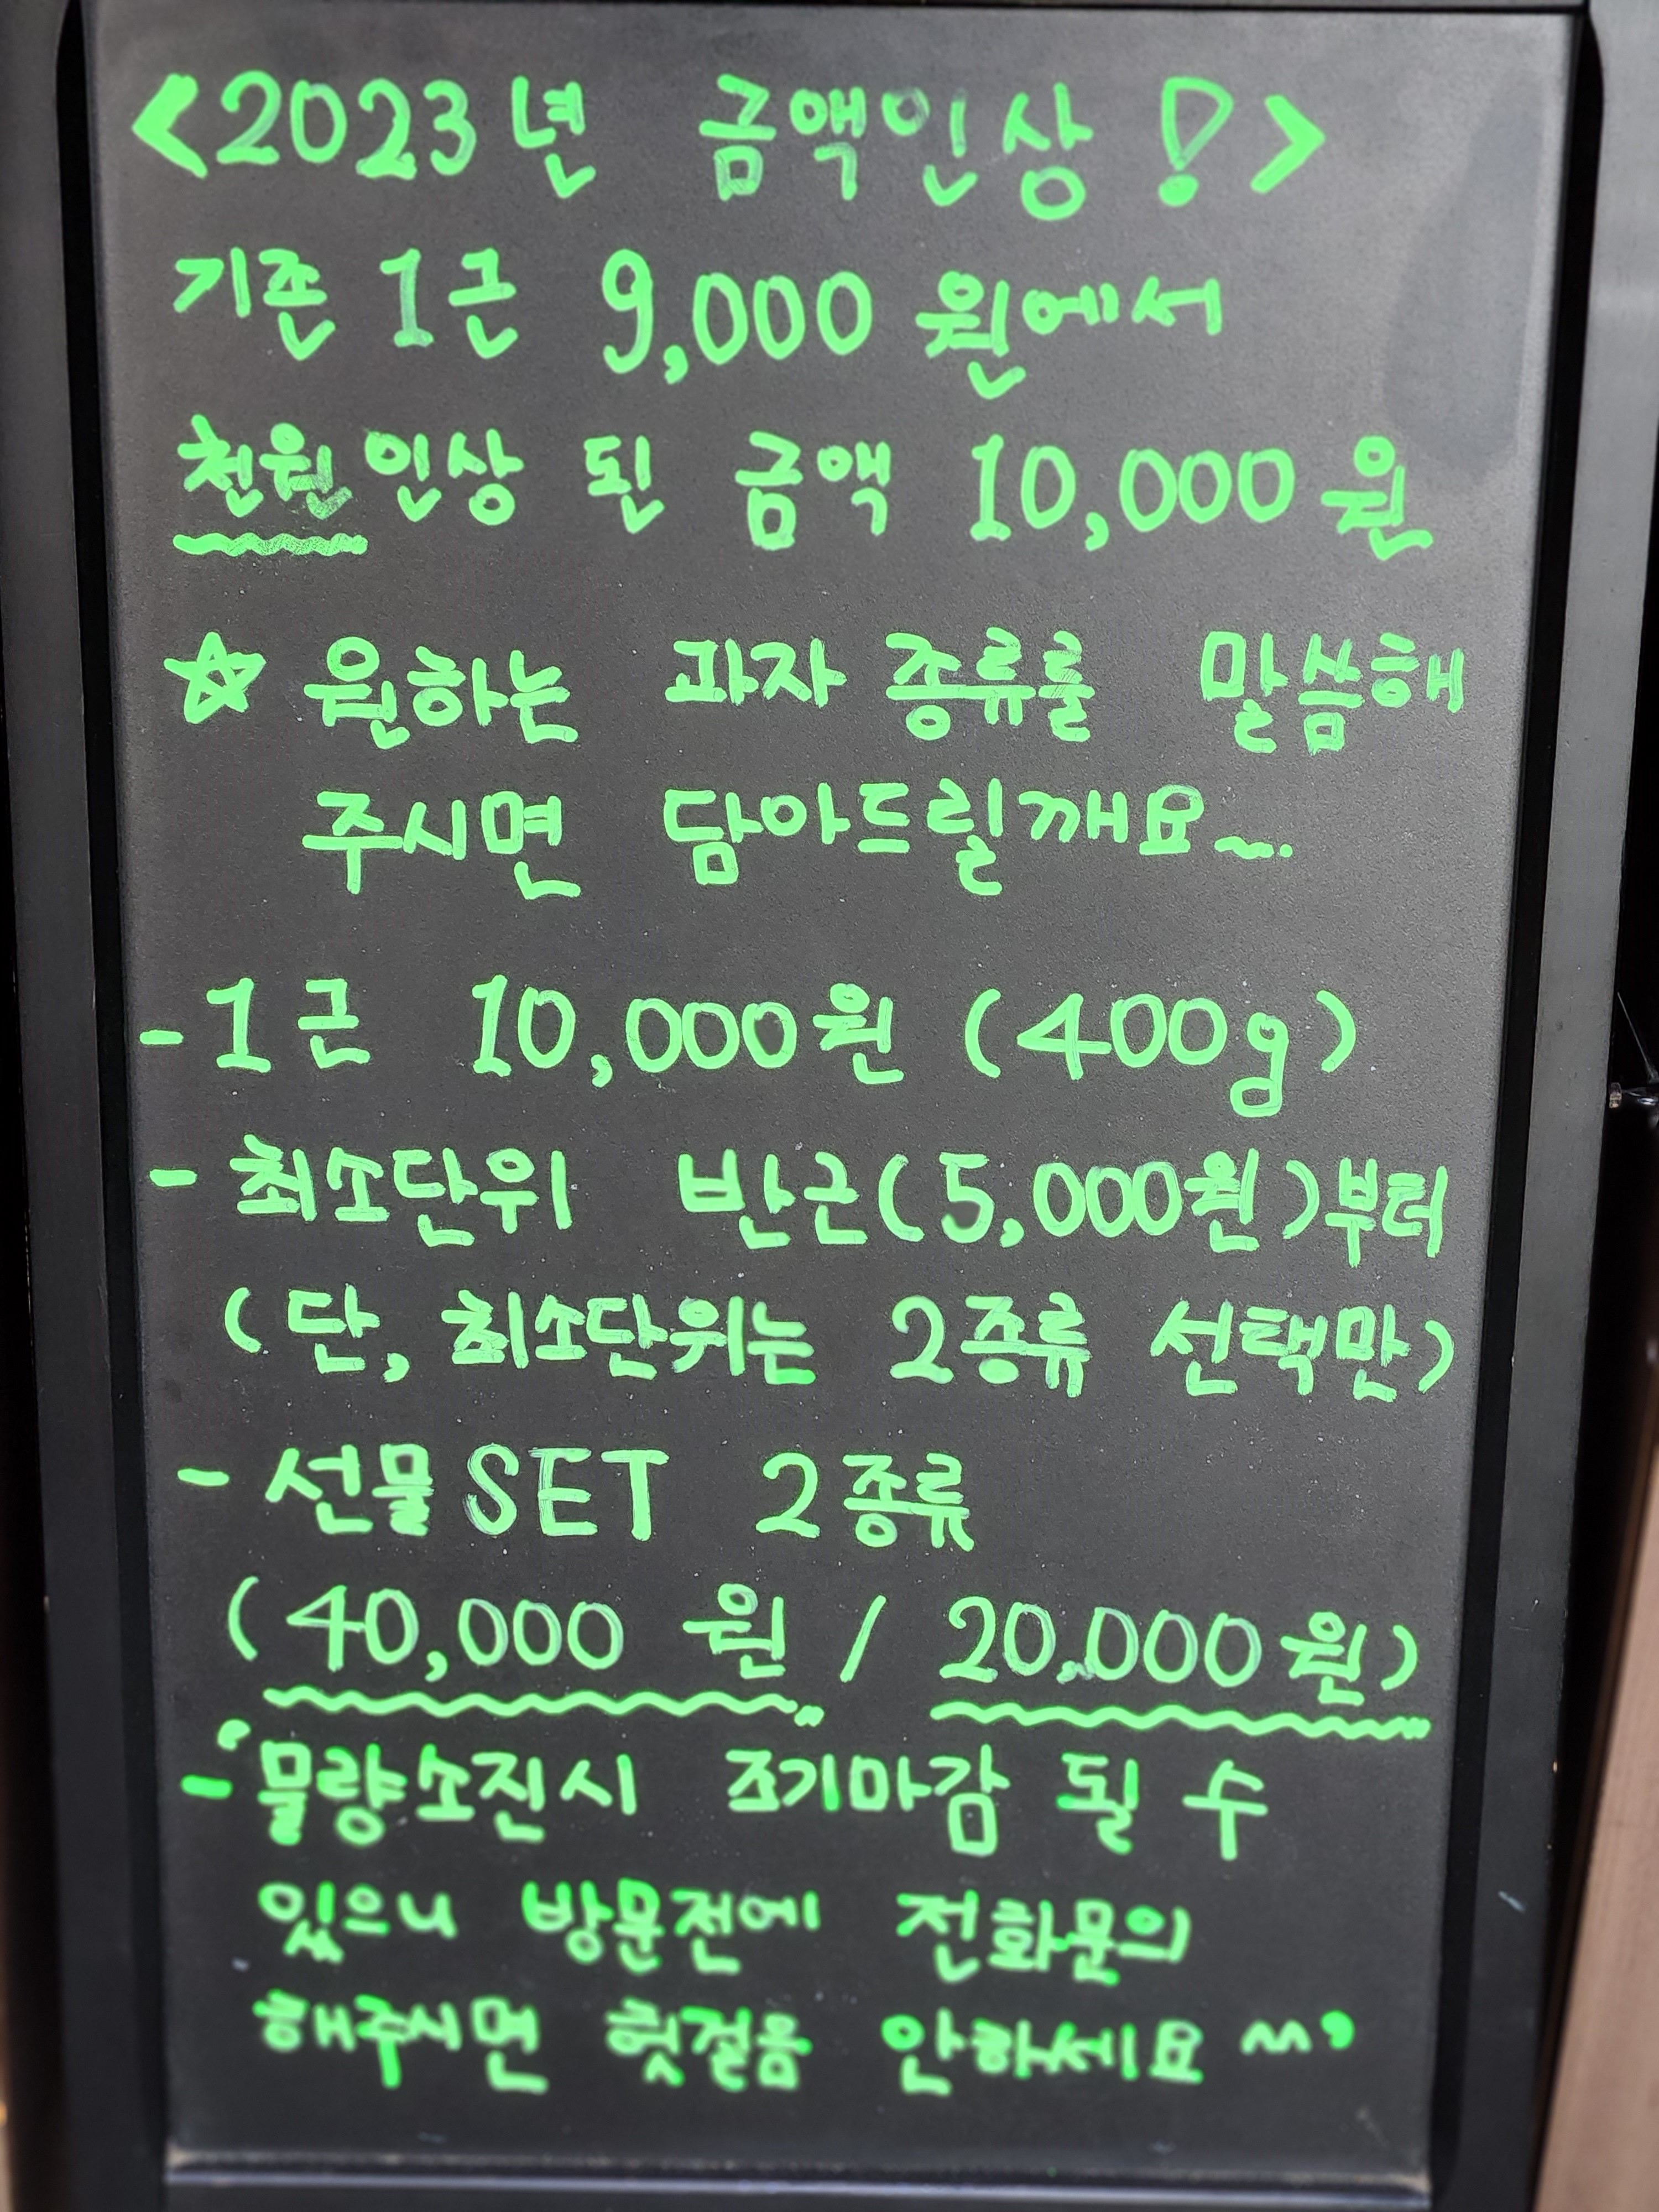 <2023년 금액인상!>
기존 1근 9,000원에서
천원인상 된 금액 10,000원
☆ 원하는 과자 종류를 말씀해
주시면 담아드릴깨요~..
-1근 10,000원 (400g)
- 최소단위 반근(5,000원)부터
(단, 최소단위는 2종류 선택만)
- 선물SET 2종류
(40,000원 / 20,000원)
-'물량소진시 조기마감 될 수
있으니 방문전에 전화문의
해주시면 헛걸음 안하세요~'